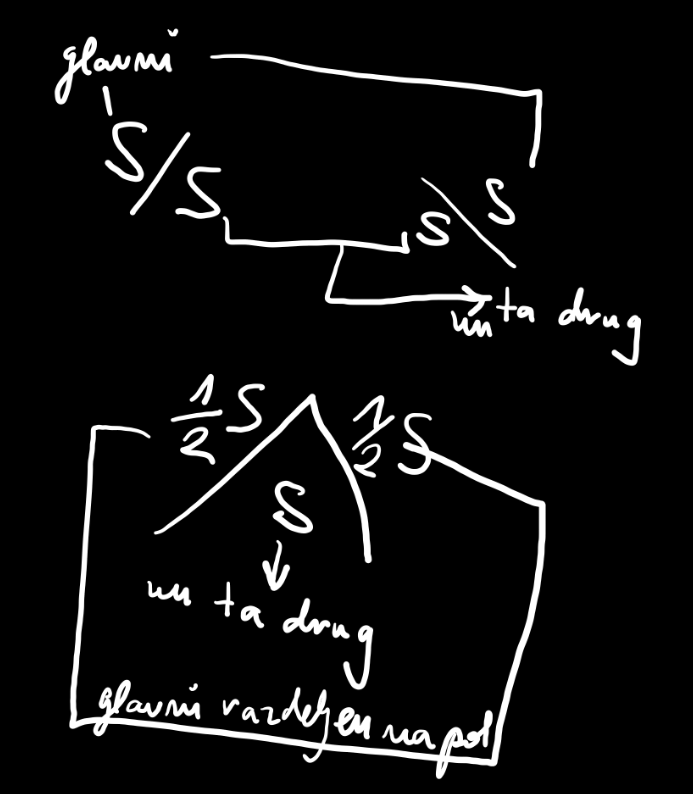 glavni
S/S
S\S
un ta drug
1/2 S
1/2 S
S
un ta drug
glavni razdeljen na pol